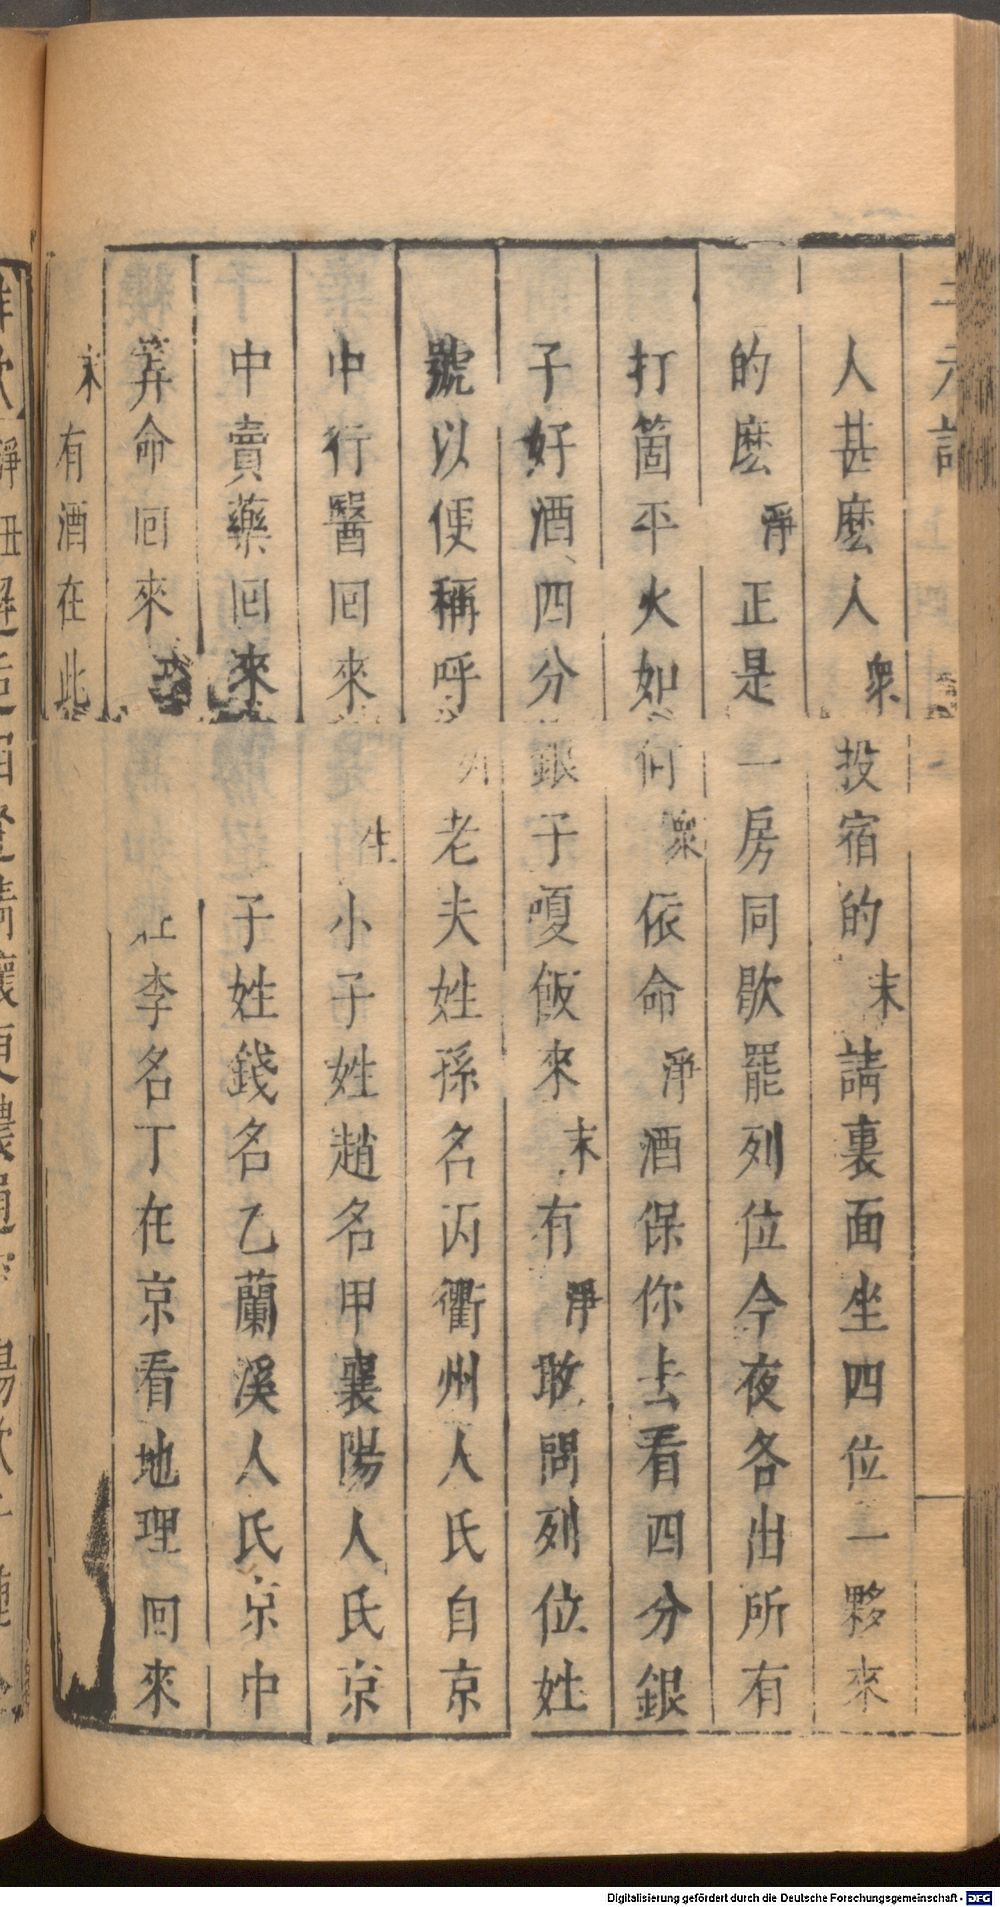 人甚麽人衆投宿的末請裏面坐四位一夥來
的麽淨正是一房同歇罷列位今夜各出所有
打箇平火如何衆依命淨酒保你去看四分銀
子好酒四分銀子嗄飯來末有淨敢問列位姓
號以便稱呼外老夫姓孫名丙衢州人氏自京
中行醫回來生小子姓趙名甲襄陽人氏京
中賣藥回來子姓錢名乙蘭溪人氏京中
筭命回來李名丁在京看地理回來
末有酒在此
Digitalisierung gefördert durch die Deutsche Forschungsgemeinschaft - DFG